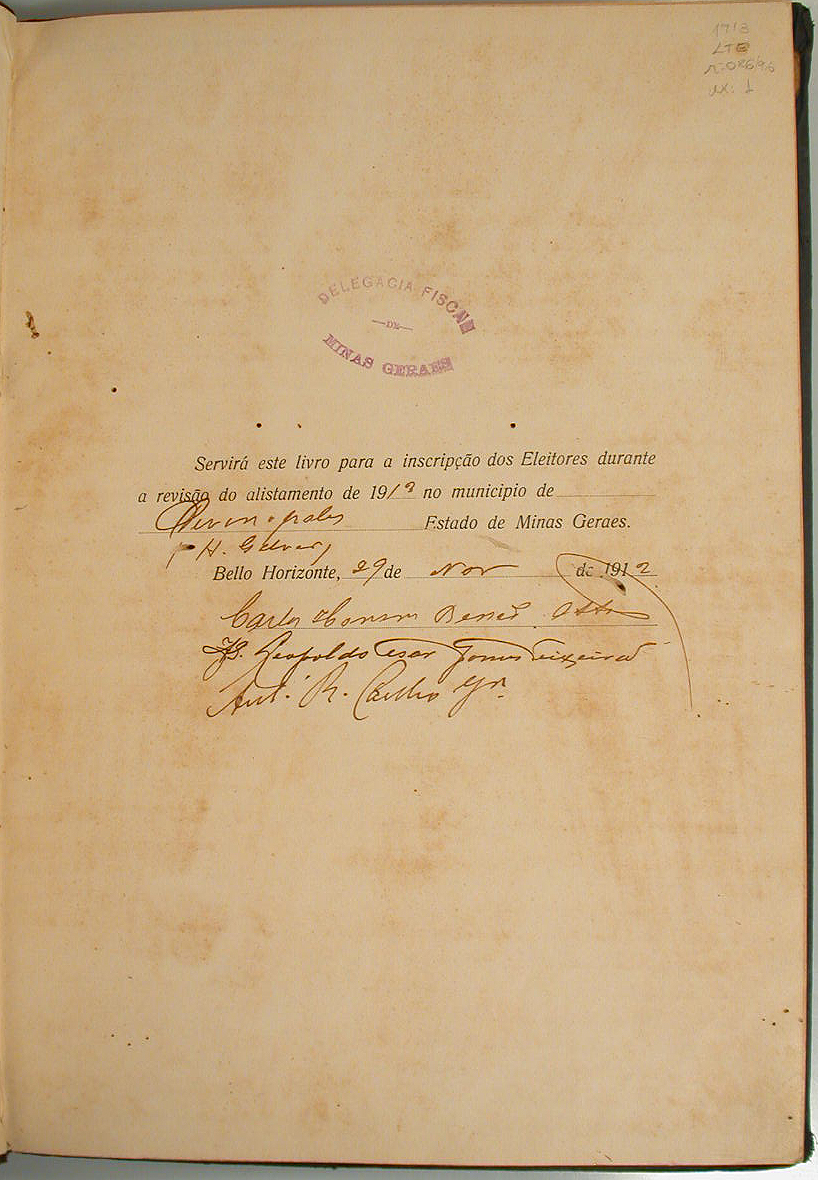 1713
DELEGACIA FISCAL
DE
MINAS GERAES
Servirá este livro para a inscripção dos Eleitores durante
a revisão do alistamento de 1912 no municipio de
Estado de Minas Geraes.
Bello Horizonte, 29 de Nov de 1912
Leopoldo Cesar Gomes Teixeira
Ant. R. Coelho Jr.